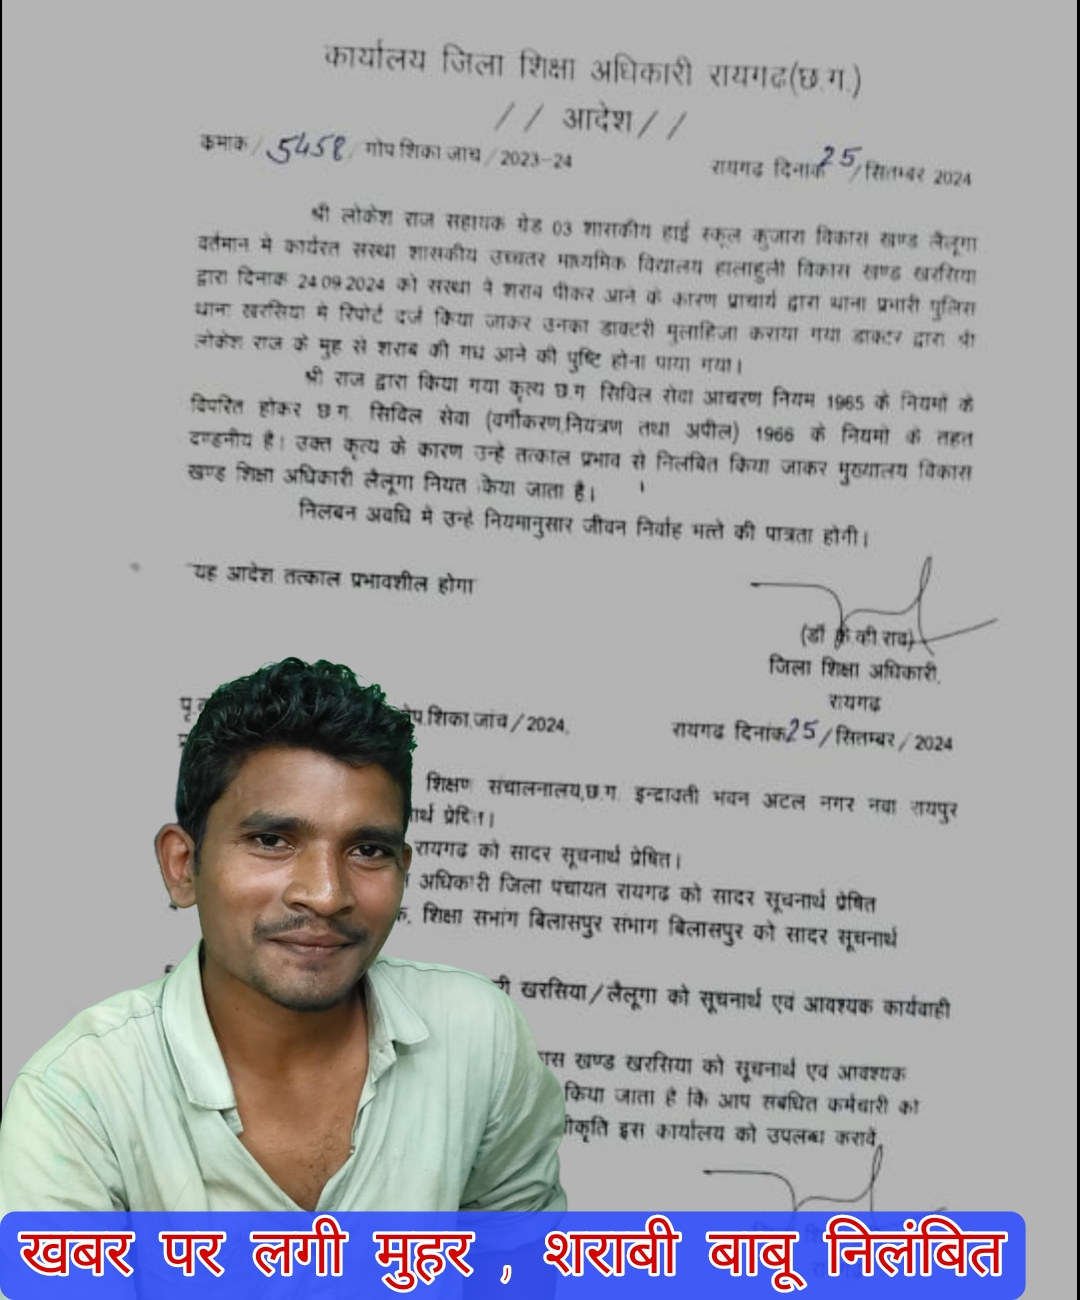 कार्यालय जिला शिक्षा अधिकारी रायगढ(छ.ग.)
// आदेश //
कमाक / 5458 / गोप.शिका.जांच / 2023-24
रायगढ दिनाक 25 / सितम्बर 2024
श्री लोकेश राज सहायक ग्रेड 03 शासकीय हाई स्कूल कुजारा विकास खण्ड लैलूंगा
वर्तमान मे कार्यरत संस्था शासकीय उच्चतर माध्यमिक विद्यालय हालाहुली विकास खण्ड खरसिया
द्वारा दिनाक 24.09.2024 को संस्था मे शराब पीकर आने के कारण प्राचार्य द्वारा थाना प्रभारी पुलिस
थाना खरसिया मे रिपोर्ट दर्ज किया जाकर उनका डाक्टरी मुलाहिजा कराया गया डाक्टर द्वारा श्री
लोकेश राज के मुह से शराब की गध आने की पुष्टि होना पाया गया।
श्री राज द्वारा किया गया कृत्य छ.ग. सिविल सेवा आचरण नियम 1965 के नियमों के
विपरित होकर छ.ग. सिविल सेवा (वर्गीकरण,नियंत्रण तथा अपील) 1966 के नियमों के तहत
दण्डनीय है। उक्त कृत्य के कारण उन्हे तत्काल प्रभाव से निलंबित किया जाकर मुख्यालय विकास
खण्ड शिक्षा अधिकारी लैलूंगा नियत किया जाता है।
निलबन अवधि मे उन्हे नियमानुसार जीवन निर्वाह भत्ते की पात्रता होगी।
यह आदेश तत्काल प्रभावशील होगा
(डॉ के.व्ही.राव)
जिला शिक्षा अधिकारी,
रायगढ
शिका.जांच / 2024,
रायगढ दिनांक 25 / सितम्बर / 2024
शिक्षण संचालनालय,छ.ग. इन्द्रावती भवन अटल नगर नवा रायपुर
प्रेषित।
रायगढ को सादर सूचनार्थ प्रेषित।
अधिकारी जिला पंचायत रायगढ को सादर सूचनार्थ प्रेषित
शिक्षा सभांग बिलासपुर संभाग बिलासपुर को सादर सूचनार्थ
खरसिया / लैलूगा को सूचनार्थ एवं आवश्यक कार्यवाही
खण्ड खरसिया को सूचनार्थ एवं आवश्यक
किया जाता है कि आप संबधित कर्मचारी का
इस कार्यालय को उपलब्ध करावें,
खबर पर लगी मुहर , शराबी बाबू निलंबित